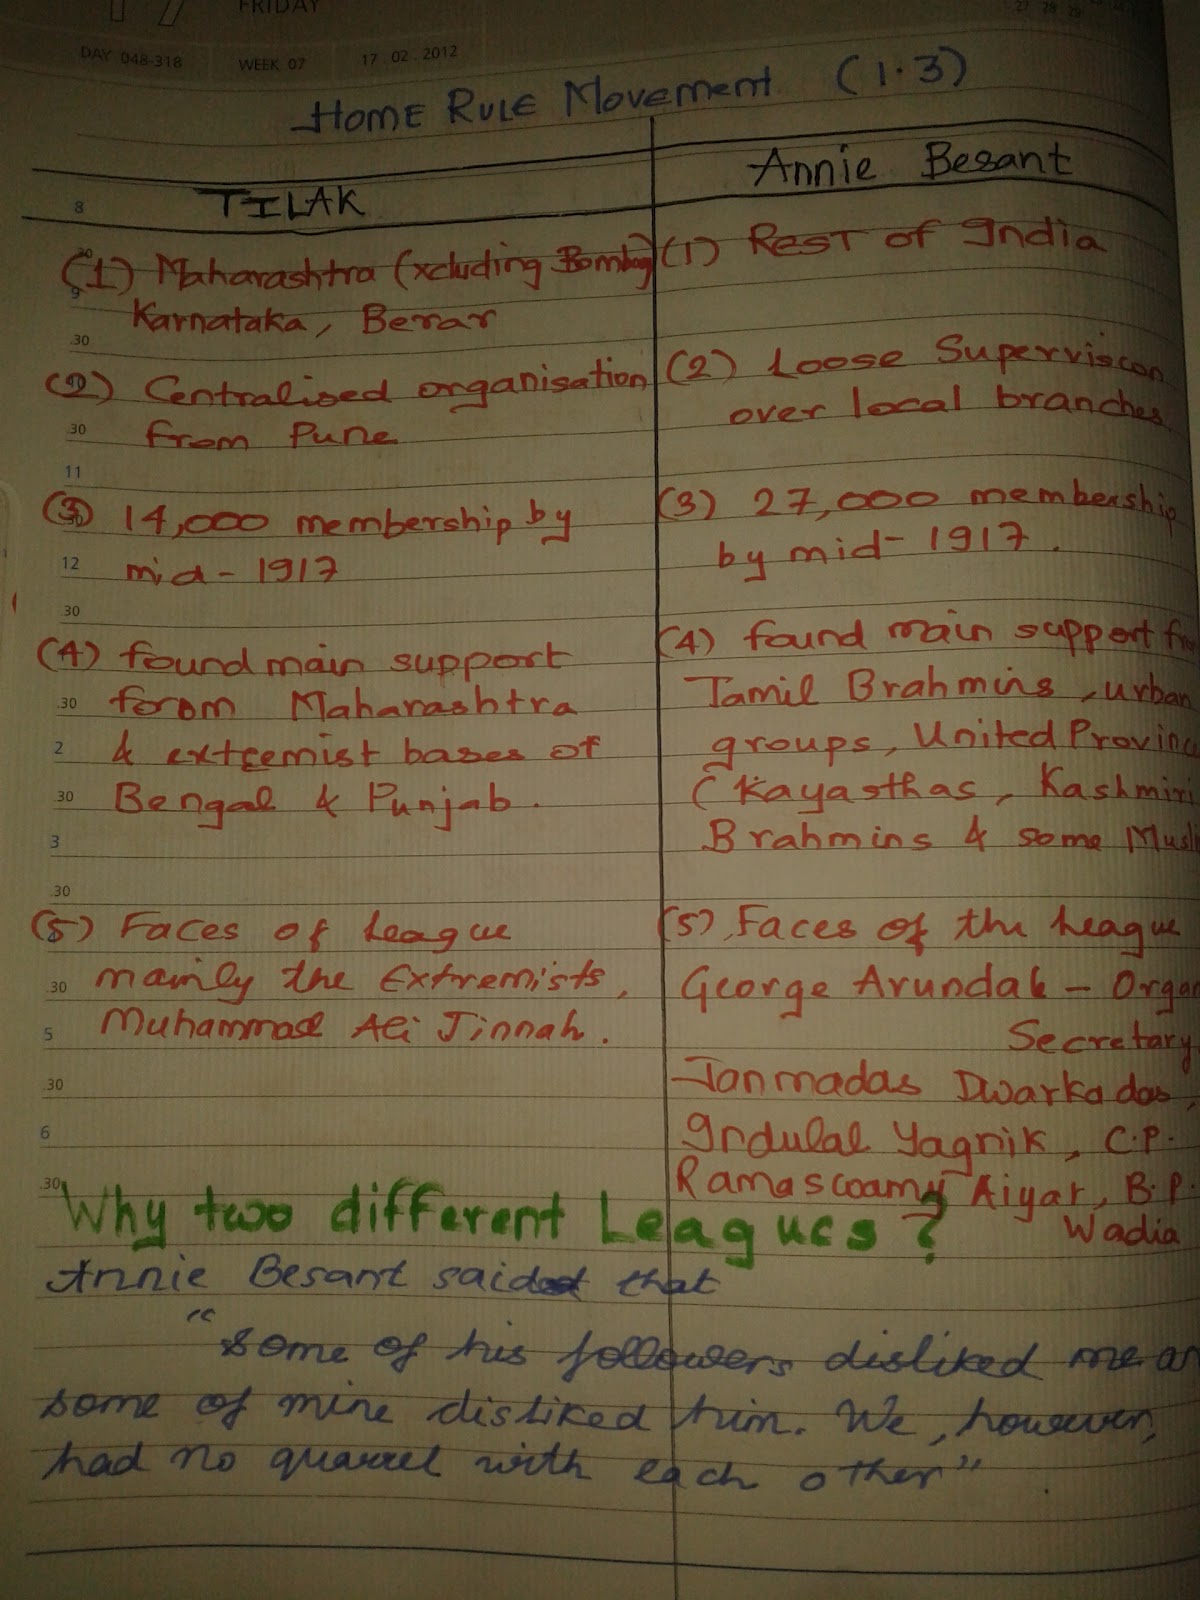 FRIDAY
27 28 29
DAY 048-318 WEEK 07 17.02.2012
HOME RULE MOVEMENT (1.3)
TILAK
Annie Besant
8
(1) Maharashtra (xcluding Bombay)
Karnataka, Berar
(1) REST of India
9
.30
(2) Centralised organisation
from Pune
(2) Loose Superviscon
over local branches
.30
11
(3) 14,000 membership by
mid-1917
(3) 27,000 membership
by mid-1917.
12
.30
(4) found main support
forom Maharashtra
& extremist bases of
Bengal & Punjab.
(4) found main support
Tamil Brahmins, urban
groups, United Provinc
(Kayasthas, Kashmiri
Brahmins & some Musl
.30
2
.30
3
.30
(5) Faces of League
mainly the Extremists,
Muhammad Ali Jinnah.
(5) Faces of the League
George Arundale - Organ
Secretary
Janmadas Dwarkadas,
Indulal Yagnik, C.P.
Ramaswamy Aiyar, B.P.
Wadia
.30
5
.30
6
.30
Why two different Leagues?
Annie Besant said that
"Some of his followers disliked me an
some of mine disliked him. We, however,
had no quarrel with each other".